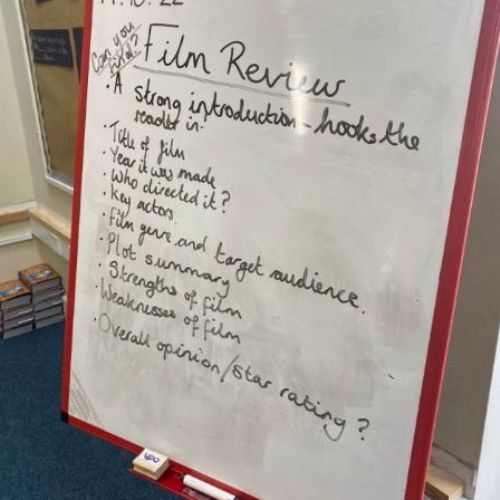 Can you find?
Film Review
· A strong introduction - hooks the
reader in.
· Title of film
· Year it was made
· Who directed it?
· Key actors.
· Film genre and target audience.
· Plot summary
· Strengths of film
· Weaknesses of film
· Overall opinion/star rating?